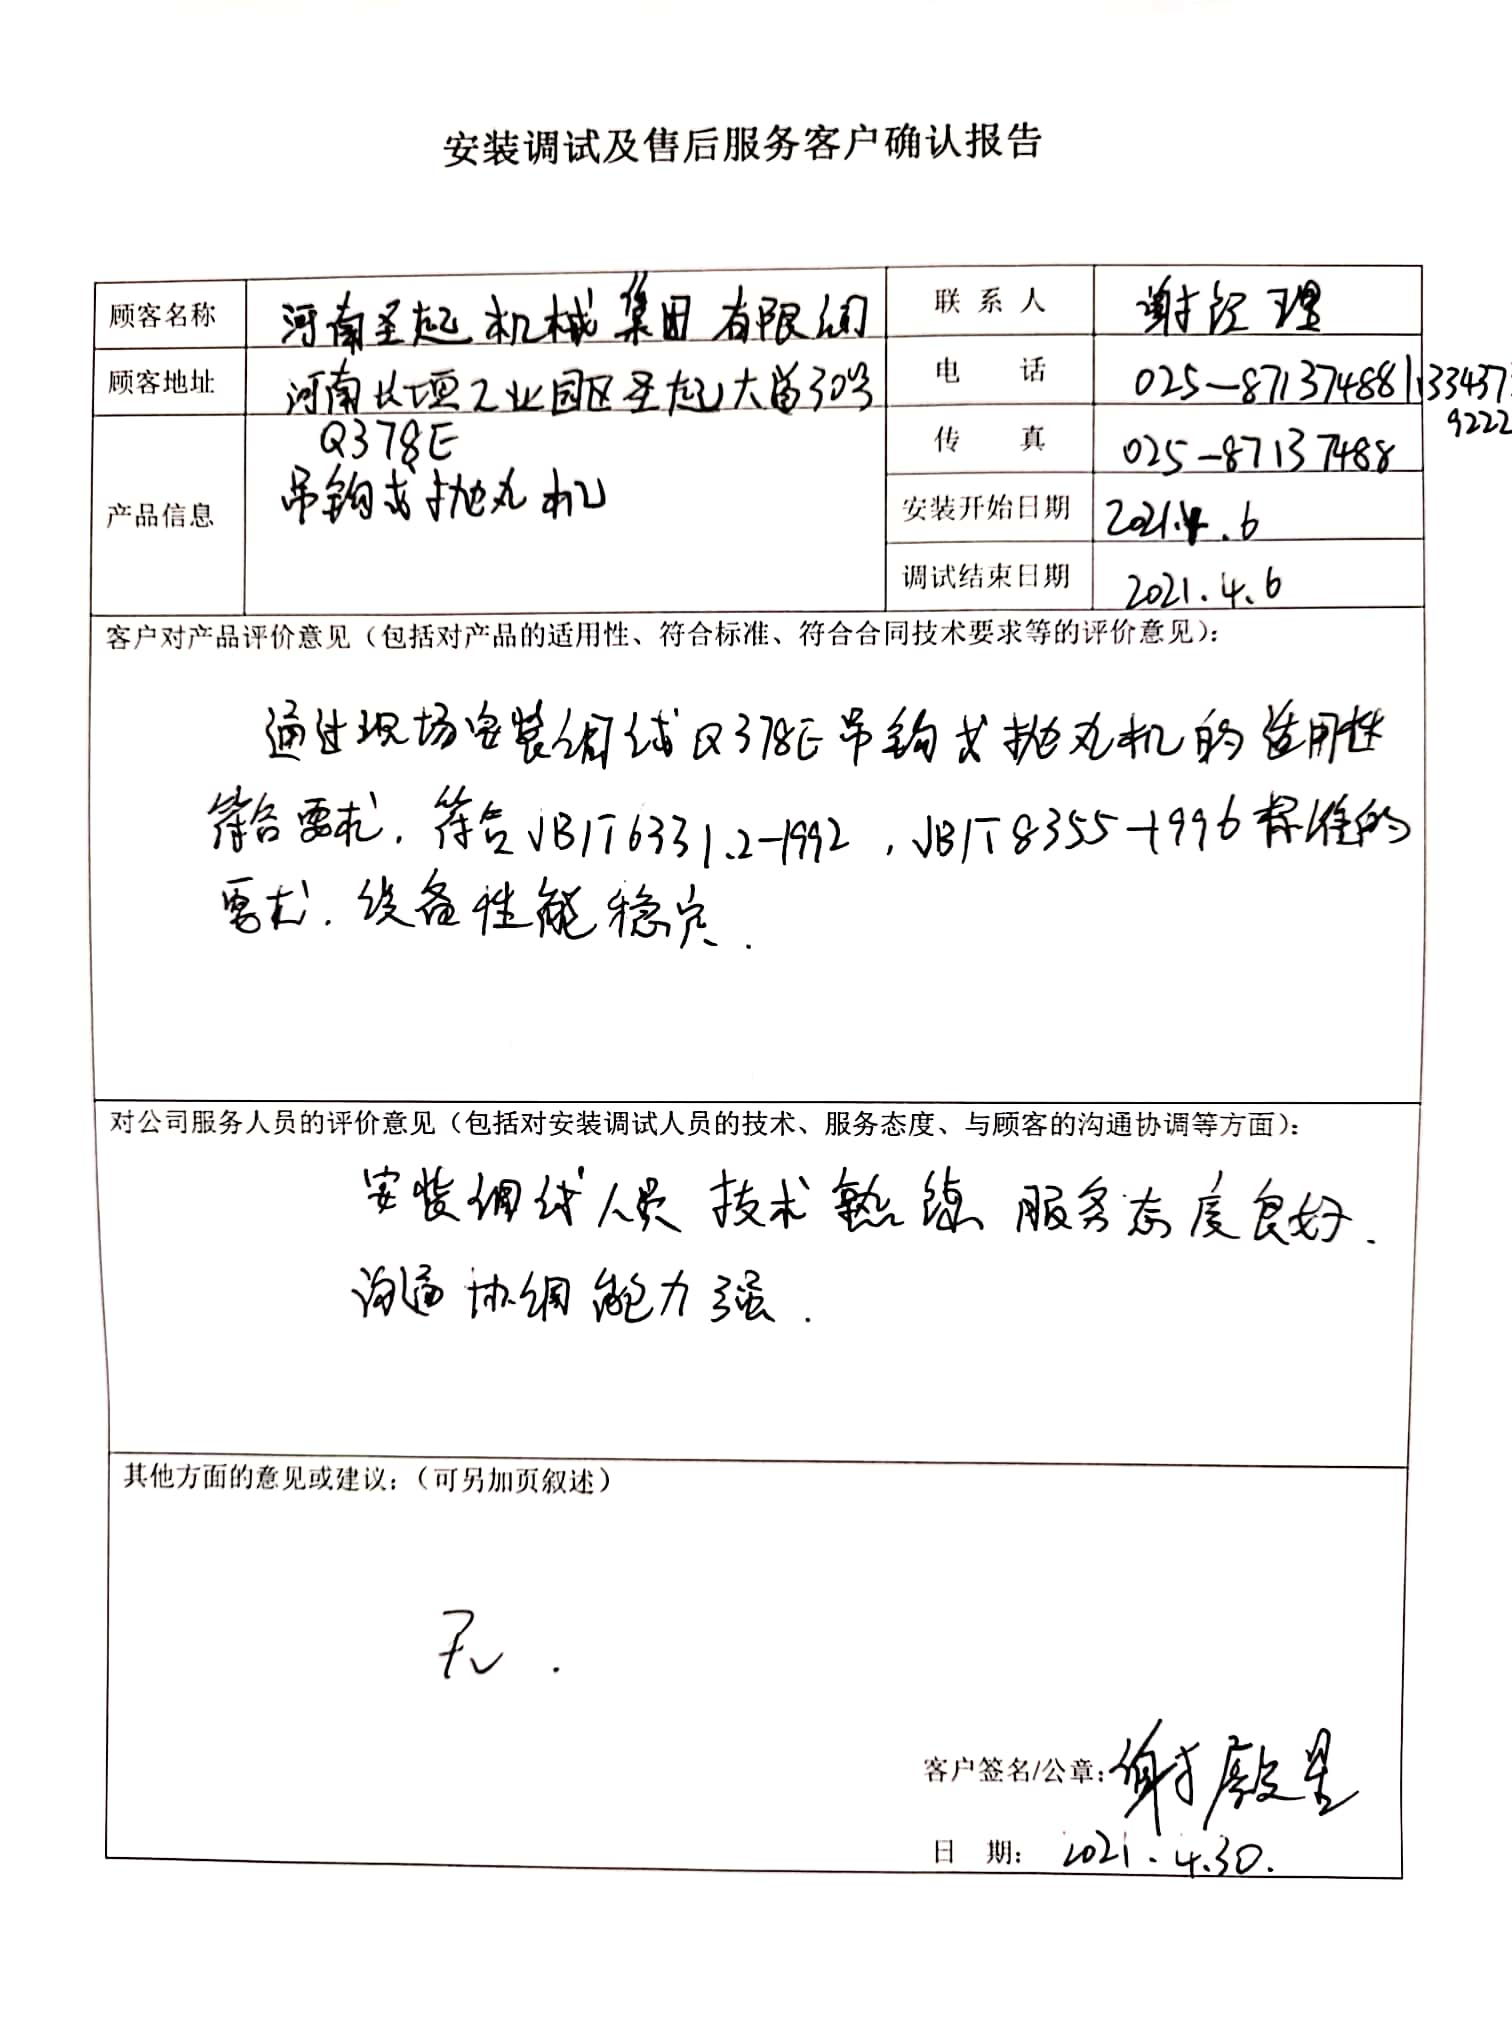 安装调试及售后服务客户确认报告
顾客名称 河南圣起机械集团有限公司 联系人 谢经理
顾客地址 河南长垣工业园区圣起大道30号 电话 025-87137488
产品信息 Q378E 传真 025-87137488
吊钩式抛丸机 安装开始日期 2021.4.6
调试结束日期 2021.4.6
客户对产品评价意见（包括对产品的适用性、符合标准、符合合同技术要求等的评价意见）：
通过现场安装调试Q378E吊钩式抛丸机的适用性
符合要求，符合JB/T6331.2-1992，JB/T8355-1996标准的
要求，设备性能稳定.
对公司服务人员的评价意见（包括对安装调试人员的技术、服务态度、与顾客的沟通协调等方面）：
安装调试人员技术熟练 服务态度良好.
沟通协调能力强.
其他方面的意见或建议：（可另加页叙述）
无.
客户签名/公章：谢
日期：2021.4.30.